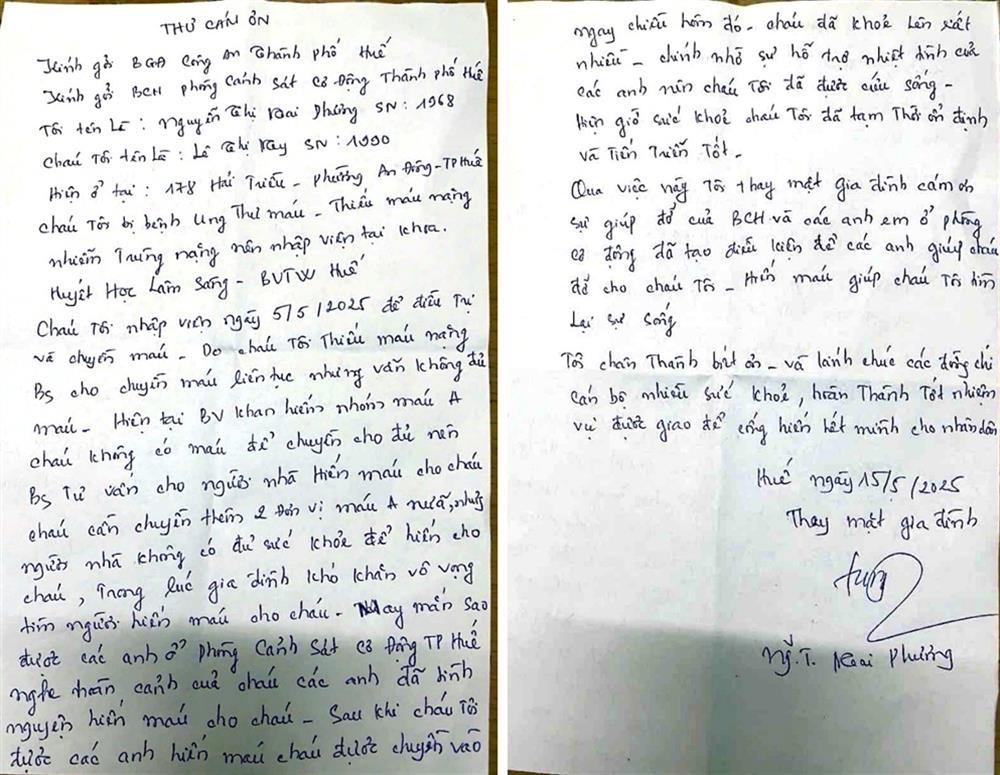 THƯ CẢM ƠN
Kính gởi BGĐ Công An Thành phố Huế
Kính gởi BCH phòng Cảnh Sát Cơ Động Thành phố Huế
Tôi tên Là : Nguyễn Thị Mai Phương SN : 1968
Cháu Tôi tên Là : Lê Thị My SN : 1990
Hiện ở tại : 178 Hải Triều - phường An Đông - TP Huế
cháu tôi bị bệnh Ung Thư máu - Thiếu máu nặng
nhiễm Trùng nặng nên nhập viện tại khoa.
Huyết Học Lâm Sàng - BVTW Huế
Cháu Tôi nhập viện ngày 5/5/2025 để điều Trị
và chuyền máu - Do cháu Tôi Thiếu máu nặng
Bs cho chuyền máu liên tục nhưng vẫn không đủ
máu - Hiện tại BV khan hiếm nhóm máu A
cháu không có máu để chuyền cho đủ nên
Bs Tư vấn cho người nhà Hiến máu cho cháu
cháu cần chuyền thêm 2 đơn vị máu A nữa, nhưng
người nhà không có đủ sức khoẻ để hiến cho
cháu, Trong lúc gia đình khó khăn vô vọng
tìm người hiến máu cho cháu - May mắn sao
được các anh ở phòng Cảnh Sát Cơ Động TP Huế
nghe hoàn cảnh của cháu các anh đã tình
nguyện hiến máu cho cháu - Sau khi cháu Tôi
được các anh hiến máu cháu được chuyền vào
ngay chiều hôm đó - cháu đã khoẻ lên rất
nhiều - chính nhờ sự hỗ trợ nhiệt tình của
các anh nên cháu Tôi đã được cứu sống -
Hiện giờ sức khoẻ cháu Tôi đã tạm Thời ổn định
và Tiến Triển Tốt -
Qua việc này Tôi Thay mặt gia đình cám ơn
sự giúp đỡ của BCH và các anh em ở phòng
cơ động đã tạo điều kiện để các anh giúp cháu
để cho cháu Tôi - Hiến máu giúp cháu Tôi tìm
Lại sự sống
Tôi chân Thành biết ơn - và kính chúc các đồng chí
cán bộ nhiều sức khoẻ, hoàn Thành Tốt nhiệm
vụ được giao để cống hiến hết mình cho nhân dân
Huế ngày 15/5/2025
Thay mặt gia đình
Ng~. T. Mai Phương